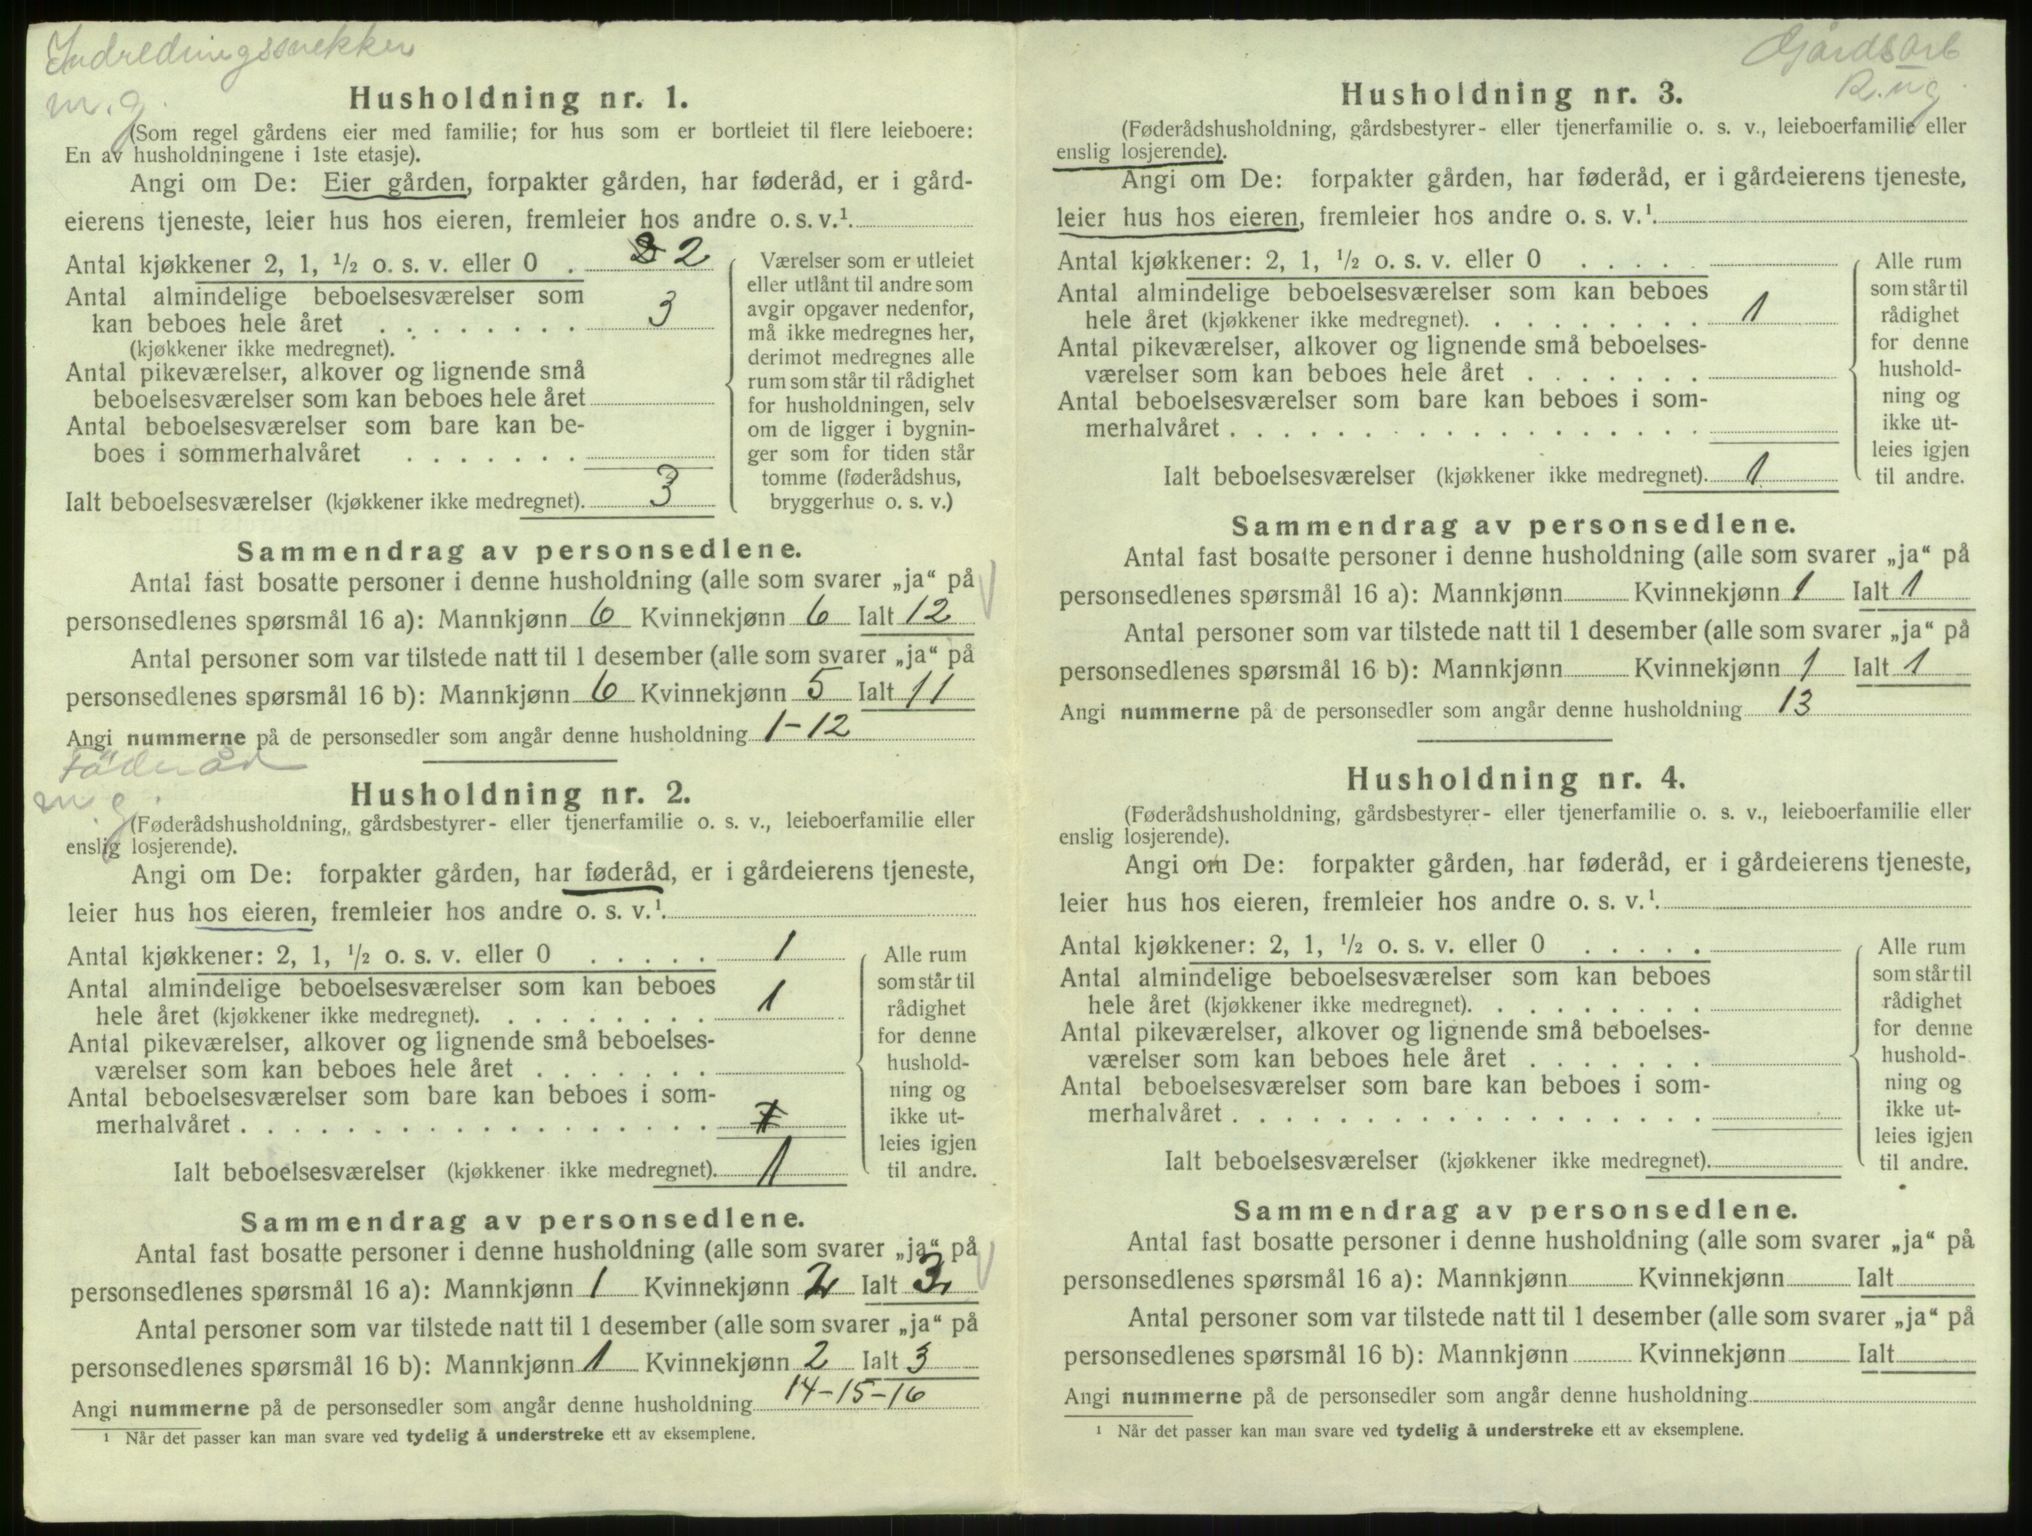 Indredningssnekker
m.g.
Husholdning nr. 1.
(Som regel gårdens eier med familie; for hus som er bortleiet til flere leieboere:
En av husholdningene i 1ste etasje).
Angi om De: Eier gården, forpakter gården, har føderåd, er i gård-
eierens tjeneste, leier hus hos eieren, fremleier hos andre o. s. v.¹.
Antal kjøkkener 2, 1, ½ o. s. v. eller 0 . 2
Antal almindelige beboelsesværelser som
kan beboes hele året . . . . . . . . 3
(kjøkkener ikke medregnet).
Antal pikeværelser, alkover og lignende små
beboelsesværelser som kan beboes hele året
Antal beboelsesværelser som bare kan be-
boes i sommerhalvåret . . . . . . .
Ialt beboelsesværelser (kjøkkener ikke medregnet). 3
Værelser som er utleiet
eller utlånt til andre som
avgir opgaver nedenfor,
må ikke medregnes her,
derimot medregnes alle
rum som står til rådighet
for husholdningen, selv
om de ligger i bygnin-
ger som for tiden står
tomme (føderådshus,
bryggerhus o. s. v.)
Sammendrag av personsedlene.
Antal fast bosatte personer i denne husholdning (alle som svarer „ja“ på
personsedlenes spørsmål 16 a): Mannkjønn 6 Kvinnekjønn 6 Ialt 12
Antal personer som var tilstede natt til 1 desember (alle som svarer „ja“ på
personsedlenes spørsmål 16 b): Mannkjønn 6 Kvinnekjønn 5 Ialt 11
Angi nummerne på de personsedler som angår denne husholdning 1-12
Føderåd
m.g.
Husholdning nr. 2.
(Føderådshusholdning, gårdsbestyrer- eller tjenerfamilie o. s. v., leieboerfamilie eller
enslig losjerende).
Angi om De: forpakter gården, har føderåd, er i gårdeierens tjeneste,
leier hus hos eieren, fremleier hos andre o. s. v.¹.
Antal kjøkkener: 2, 1, ½ o. s. v. eller 0 . . . . . 1
Antal almindelige beboelsesværelser som kan beboes
hele året (kjøkkener ikke medregnet). . . . . . . . . 1
Antal pikeværelser, alkover og lignende små beboelses-
værelser som kan beboes hele året . . . . . . .
Antal beboelsesværelser som bare kan beboes i som-
merhalvåret . . . . . . . . . . . . . . . . . .
Ialt beboelsesværelser (kjøkkener ikke medregnet). 1
Alle rum
som står til
rådighet
for denne
hushold-
ning og
ikke ut-
leies igjen
til andre.
Sammendrag av personsedlene.
Antal fast bosatte personer i denne husholdning (alle som svarer „ja“ på
personsedlenes spørsmål 16 a): Mannkjønn 1 Kvinnekjønn 2 Ialt 3
Antal personer som var tilstede natt til 1 desember (alle som svarer „ja“ på
personsedlenes spørsmål 16 b): Mannkjønn 1 Kvinnekjønn 2 Ialt 3
Angi nummerne på de personsedler som angår denne husholdning 14-15-16
¹ Når det passer kan man svare ved tydelig å understreke ett av eksemplene.
Gårdsarb
R. ug
Husholdning nr. 3.
(Føderådshusholdning, gårdsbestyrer- eller tjenerfamilie o. s. v., leieboerfamilie eller
enslig losjerende).
Angi om De: forpakter gården, har føderåd, er i gårdeierens tjeneste,
leier hus hos eieren, fremleier hos andre o. s. v.¹.
Antal kjøkkener: 2, 1, ½ o. s. v. eller 0 . . . . .
Antal almindelige beboelsesværelser som kan beboes
hele året (kjøkkener ikke medregnet). . . . . . . . . 1
Antal pikeværelser, alkover og lignende små beboelses-
værelser som kan beboes hele året . . . . . . .
Antal beboelsesværelser som bare kan beboes i som-
merhalvåret . . . . . . . . . . . . . . . . . .
Ialt beboelsesværelser (kjøkkener ikke medregnet). 1
Alle rum
som står til
rådighet
for denne
hushold-
ning og
ikke ut-
leies igjen
til andre.
Sammendrag av personsedlene.
Antal fast bosatte personer i denne husholdning (alle som svarer „ja“ på
personsedlenes spørsmål 16 a): Mannkjønn Kvinnekjønn 1 Ialt 1
Antal personer som var tilstede natt til 1 desember (alle som svarer „ja“ på
personsedlenes spørsmål 16 b): Mannkjønn Kvinnekjønn 1 Ialt 1
Angi nummerne på de personsedler som angår denne husholdning 13
Husholdning nr. 4.
(Føderådshusholdning, gårdsbestyrer- eller tjenerfamilie o. s. v., leieboerfamilie eller
enslig losjerende).
Angi om De: forpakter gården, har føderåd, er i gårdeierens tjeneste,
leier hus hos eieren, fremleier hos andre o. s. v.¹.
Antal kjøkkener: 2, 1, ½ o. s. v. eller 0 . . . . .
Antal almindelige beboelsesværelser som kan beboes
hele året (kjøkkener ikke medregnet). . . . . . . . .
Antal pikeværelser, alkover og lignende små beboelses-
værelser som kan beboes hele året . . . . . . .
Antal beboelsesværelser som bare kan beboes i som-
merhalvåret . . . . . . . . . . . . . . . . . .
Ialt beboelsesværelser (kjøkkener ikke medregnet).
Alle rum
som står til
rådighet
for denne
hushold-
ning og
ikke ut-
leies igjen
til andre.
Sammendrag av personsedlene.
Antal fast bosatte personer i denne husholdning (alle som svarer „ja“ på
personsedlenes spørsmål 16 a): Mannkjønn Kvinnekjønn Ialt
Antal personer som var tilstede natt til 1 desember (alle som svarer „ja“ på
personsedlenes spørsmål 16 b): Mannkjønn Kvinnekjønn Ialt
Angi nummerne på de personsedler som angår denne husholdning
¹ Når det passer kan man svare ved tydelig å understreke ett av eksemplene.